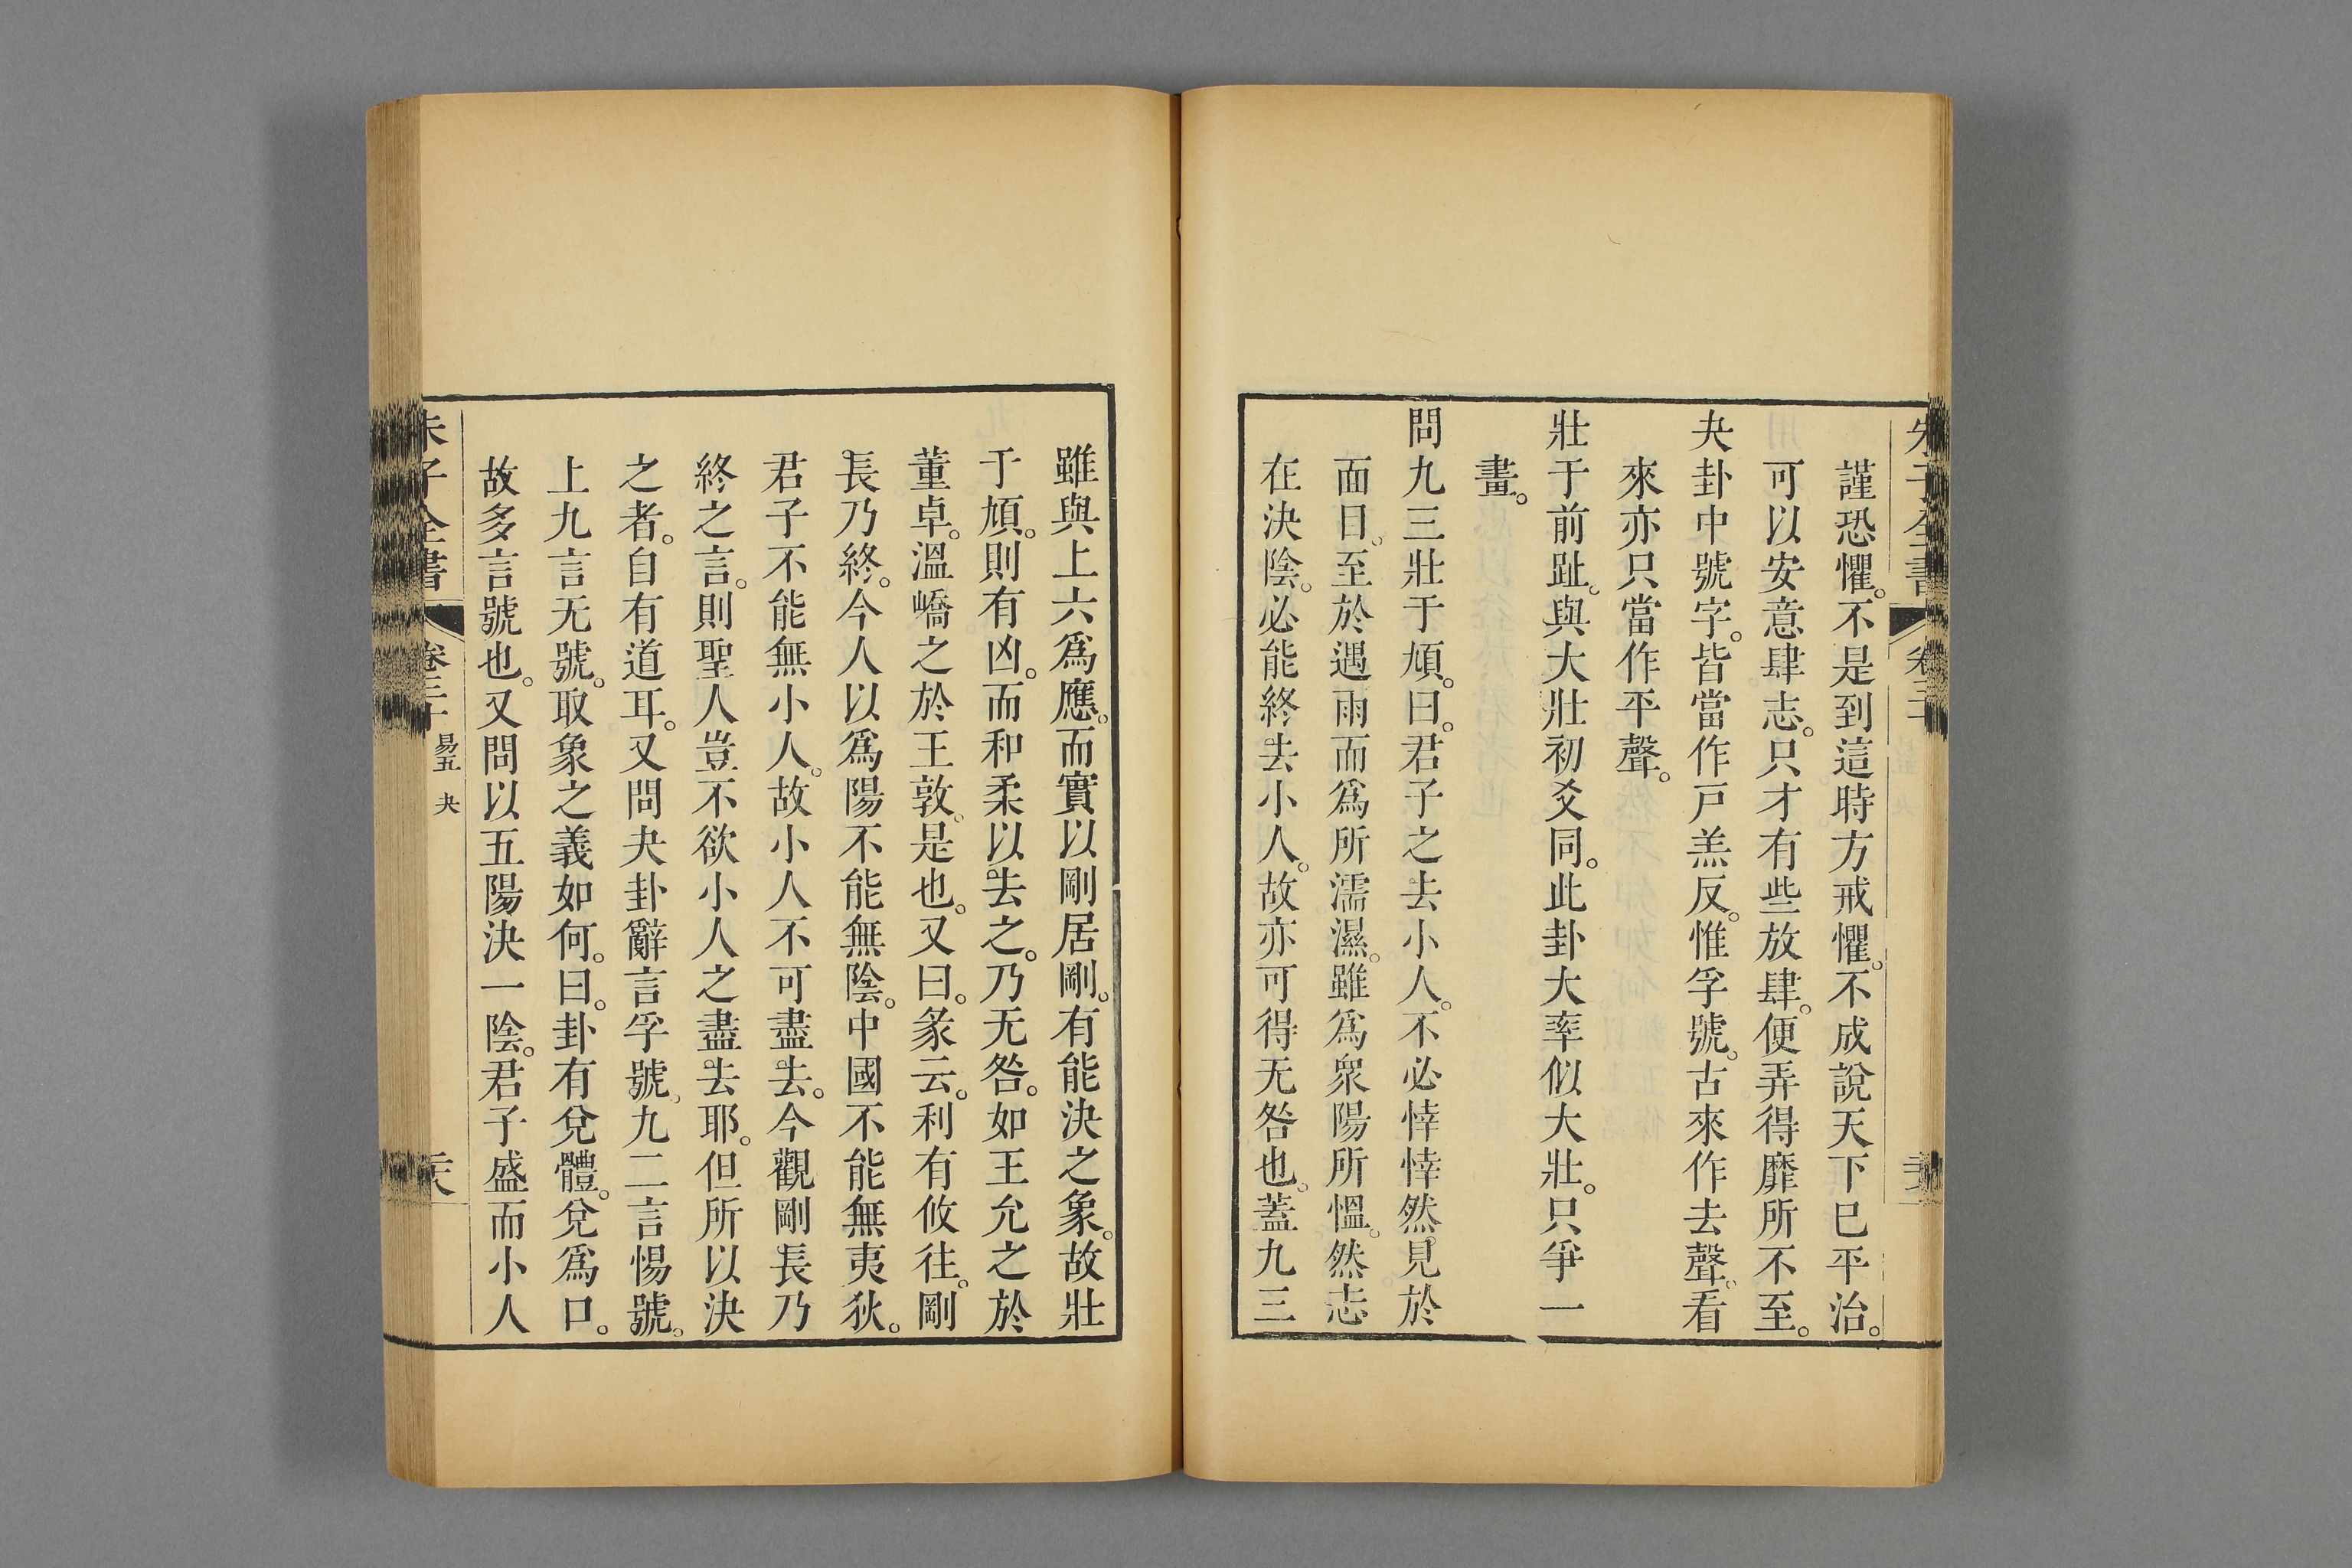 謹恐懼。不是到這時方戒懼。不成說天下已平治。
可以安意肆志。只才有些放肆。便弄得靡所不至。
夬卦中號字。皆當作戸羔反。惟孚號。古來作去聲。看
來亦只當作平聲。
壯于前趾。與大壯初爻同。此卦大率似大壯。只爭一
畫。
問九三壯于頄。曰。君子之去小人。不必悻悻然。見於
面目。至於遇雨而爲所濡濕。雖爲衆陽所慍。然志
在決陰。必能終去小人。故亦可得无咎也。蓋九三
雖與上六爲應。而實以剛居剛。有能決之象。故壯
于頄。則有凶。而和柔以去之。乃无咎。如王允之於
董卓。溫嶠之於王敦。是也。又曰。彖云。利有攸往。剛
長乃終。今人以爲陽不能無陰。中國不能無夷狄。
君子不能無小人。故小人不可盡去。今觀剛長乃
終之言。則聖人豈不欲小人之盡去耶。但所以決
之者。自有道耳。又問夬卦辭言孚號。九二言惕號。
上九言无號。取象之義如何。曰。卦有兌體。兌爲口。
故多言號也。又問以五陽決一陰。君子盛而小人
朱子全書 卷三十 易五 夬